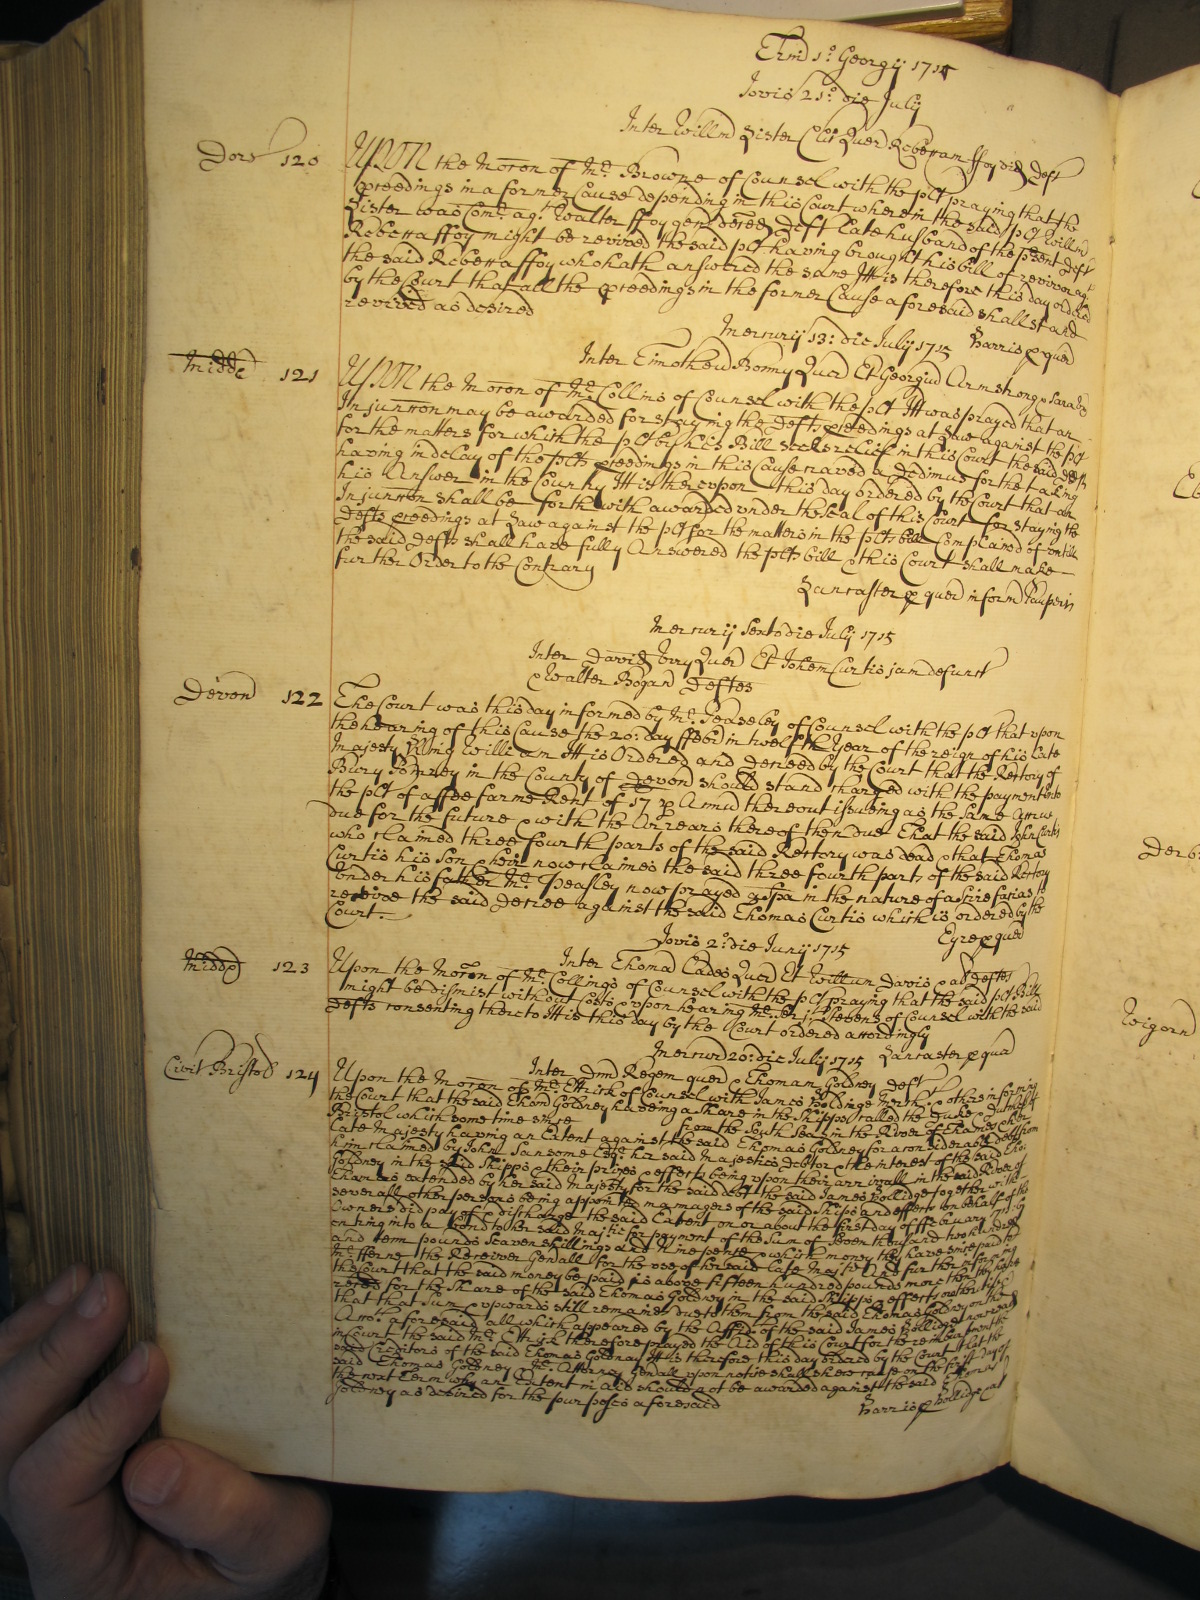 Trin 1.o Georgij 1715
Jovis 21.o die July
Inter Willm Lister Clic Quer Rebeccam ffoy vid Deft
Dors 120 UPON the Mocon of Mr. Browne of Counsel with the plt praying that the
pceedings in a former Cause depending in this Court wherein the said plt Willm
Lister was Comt. agt. Walter ffoy gen deced Deft late husband of the psent Deft
Rebecca ffoy might be revived the said plt having brought his bill of revivor agt
the said Rebecca ffoy who hath answered the same Itt is therefore this day ordered
by the Court that all the pceedings in the former Cause aforesaid shall stand
revived as desired
Harris p quer
Mercurij 13: die July 1715
Inter Timotheu Bonny Quer Et Georgiu Armstrong
Midde 121 UPON the Mocon of Mr. Collins of Counsel with the plt Itt was prayed that an
Injunccon may be awarded for staying the Defts pceedings at Law against the plt
for the matters for which the plt by his Bill seeks releif in this Court the said Defts
having in delay of the plts pceedings in this Cause craved a Dedimus for the taking
his Answer in the Country Itt is thereupon this day ordered by the Court that an
Injunccon shall be forthwith awarded under the seal of this Court for staying the
Defts pceedings at Law against the plt for the matters in the plts bill Complained of untill
the said Defts shall have fully Answered the plts bill & this Court shall make
further Order to the Contrary
Lancaster p quer in forma Pauperis
Mercurij Sexto die July 1715
Inter David Quer Et Johem Curtis jam defunct
& Walter Bogan Deftes
Devon 122 The Court was this day informed by Mr. Peaseley of Counsel with the plt that upon
the hearing of this Cause the 20: day ffebr in twelfth Year of the reign of his late
Majesty King William Itt is Ordered and Decreed by the Court that the Rectory of
Bury Pomrey in the County of Devon should stand charged with the payment unto
the plt of a ffee farme Rent of 17 p Annu thereout issueing as the same grew
due for the future & with the Arrears thereof then due That the said John Curtis
who claimed three fourth parts of the said Rectory was dead & that Thomas
Curtis his Son & heir now claimes the said three fourth parts of the said Rectory
under his father Mr. Peasley now prayed a spa in the nature of a scire facias to
receive the said Decree against the said Thomas Curtis which is ordered by the
Court.
Eyre p quer
Jovis 2.o die Junij 1715
Inter Thoma Eades Quer Et Willum Davis & al Deftes
Middx 123 Upon the Mocon of Mr. Collings of Counsel with the plt praying that the said plts Bill
might be dismist without Costs & upon hearing Mr. Serjt. Stevens of Counsel with the said
Defts consenting thereto Itt is this day by the Court ordered accordingly
Lancaster p quer
Mercurij 20: die July 1715
Inter Dmd Regem quer & Thomam Goldney Deft
Civit Bristol 124 Upon the Mocon of Mr. Ettrick of Counsel with James Hollidge Mercht. & others informing
the Court that the said Thoms Goldney haveing a share in the Shipps called the Duke & Dutchess of
Bristol which some time since from the South Seas in the River of Thames & her
late Majesty having an Extent against the said Thomas Goldney for a considerable debt from
him claimed by John Sansome Esqr. her said Majesties Debtor & the interest of the said Tho:
Goldney in the said Shipps & their prizes & effects being upon their arrivall in the said River of
Thames extended by her said Majesty for the said debt the said James Hollidge together with
severall other persons being appointed managers of the said Ships and effects on behalf of the
Owners did pay of & discharge the said Extent on or about the first day of ffebruary by
entring into a bond to her said Majtie for payment of the Sum of Seven thousand two hundred
and tenn pounds Seaven shillings and Nine pence & which money they have since paid to
Mr. fferne the Receiver Genall for the use of her said late Majtie And further informing
the Court that the said money be paid is above fifteen hundred pounds more then they have
reced for the Share of the said Thomas Goldney in the said Shipps & effects
that that Sum & upwards still remaines due to them from the said Thomas Goldney on the
Acco. aforesaid all which appeared by the Affdt. of the said James Hollidge now read
in Court the said Mr. Ettrick therefore prayed the Aid of this Court for the reimbursment the
said Creditors of the said Thomas Goldney Itt is therefore this day ordered by the Court that the
said Thomas Goldney & Mr. Attorney Generall upon notice shall shew cause on the first day of
the next Term why an Extent in aid should not be awarded against the said Thomas
Goldney as desired for the purposes aforesaid
Harris p Hollidge & al
Derb
Wigorn